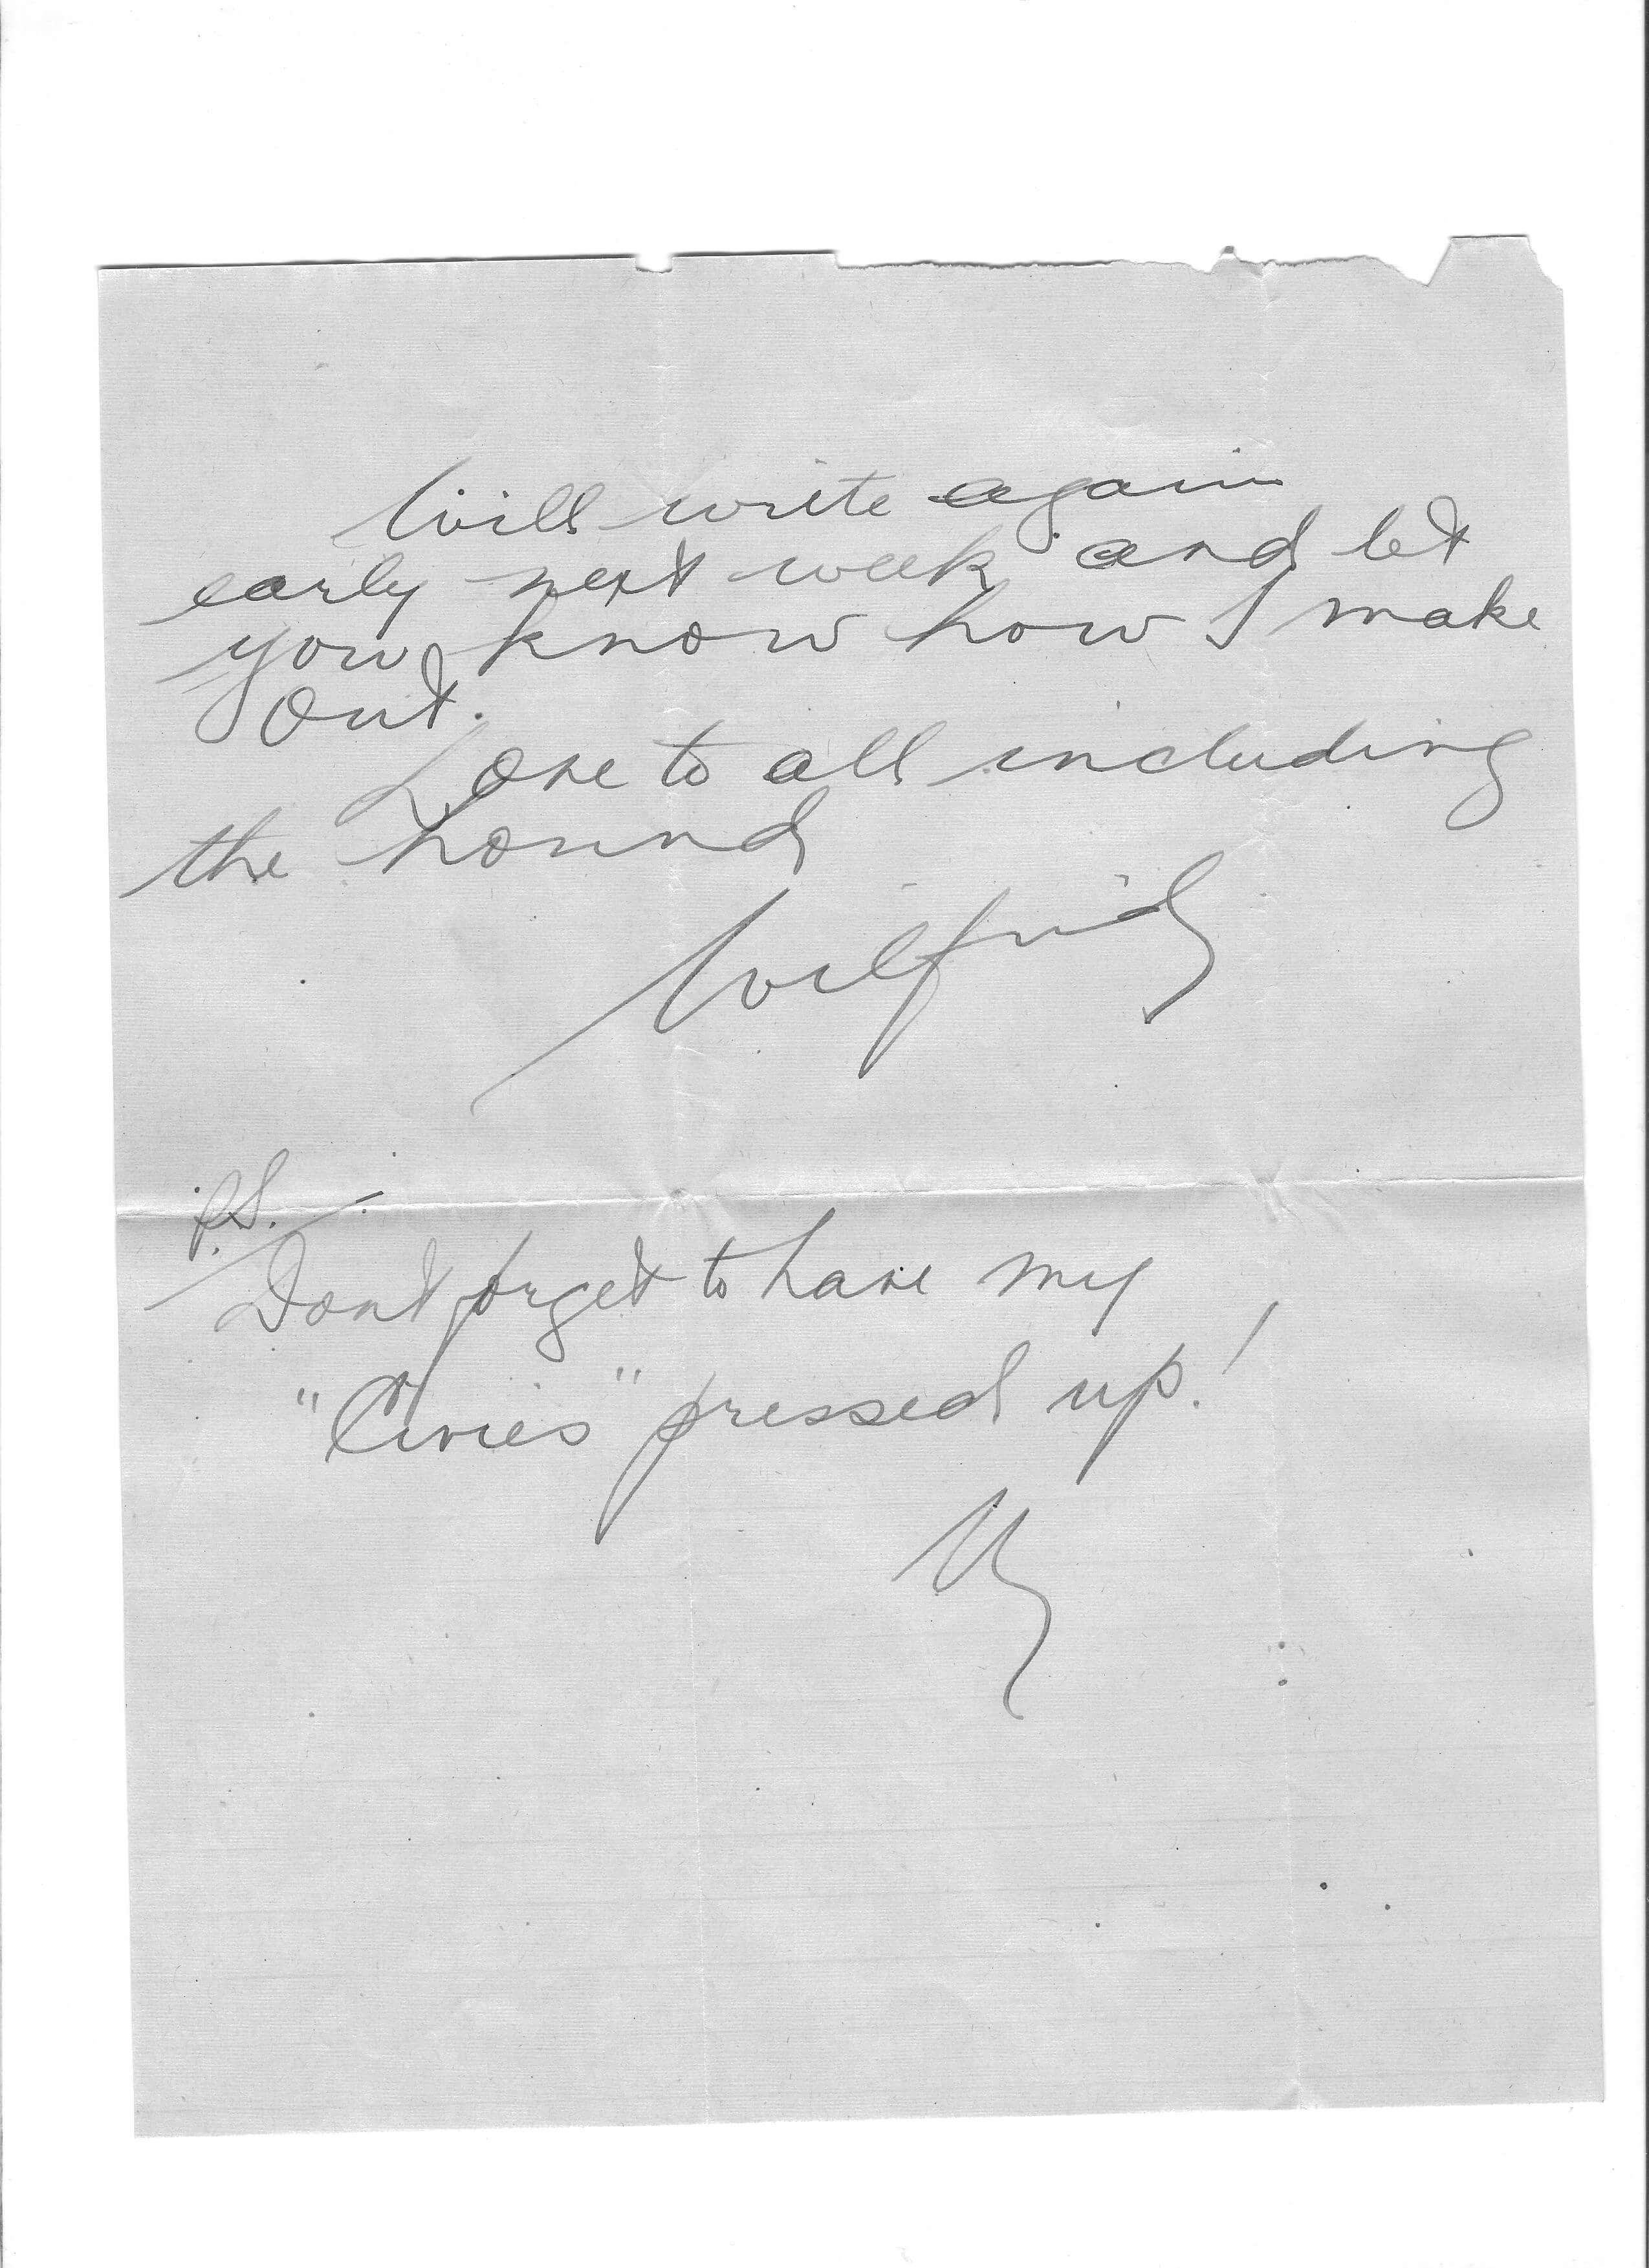 Will write again
early next week and let
you know how I make
out.
Love to all including
the hound
Wilfrid
P.S. -
Dont forget to have my
"Civies" pressed up!
W